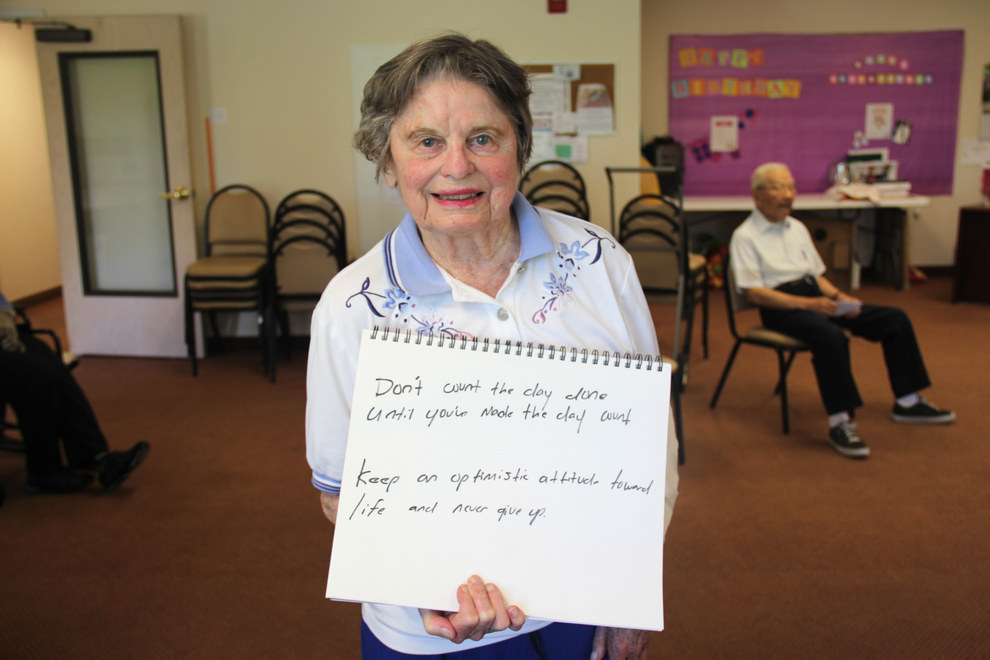 HAPPY
BIRTHDAY
Don't count the day done
Until you've made the day count
Keep an optimistic attitude toward
life and never give up.